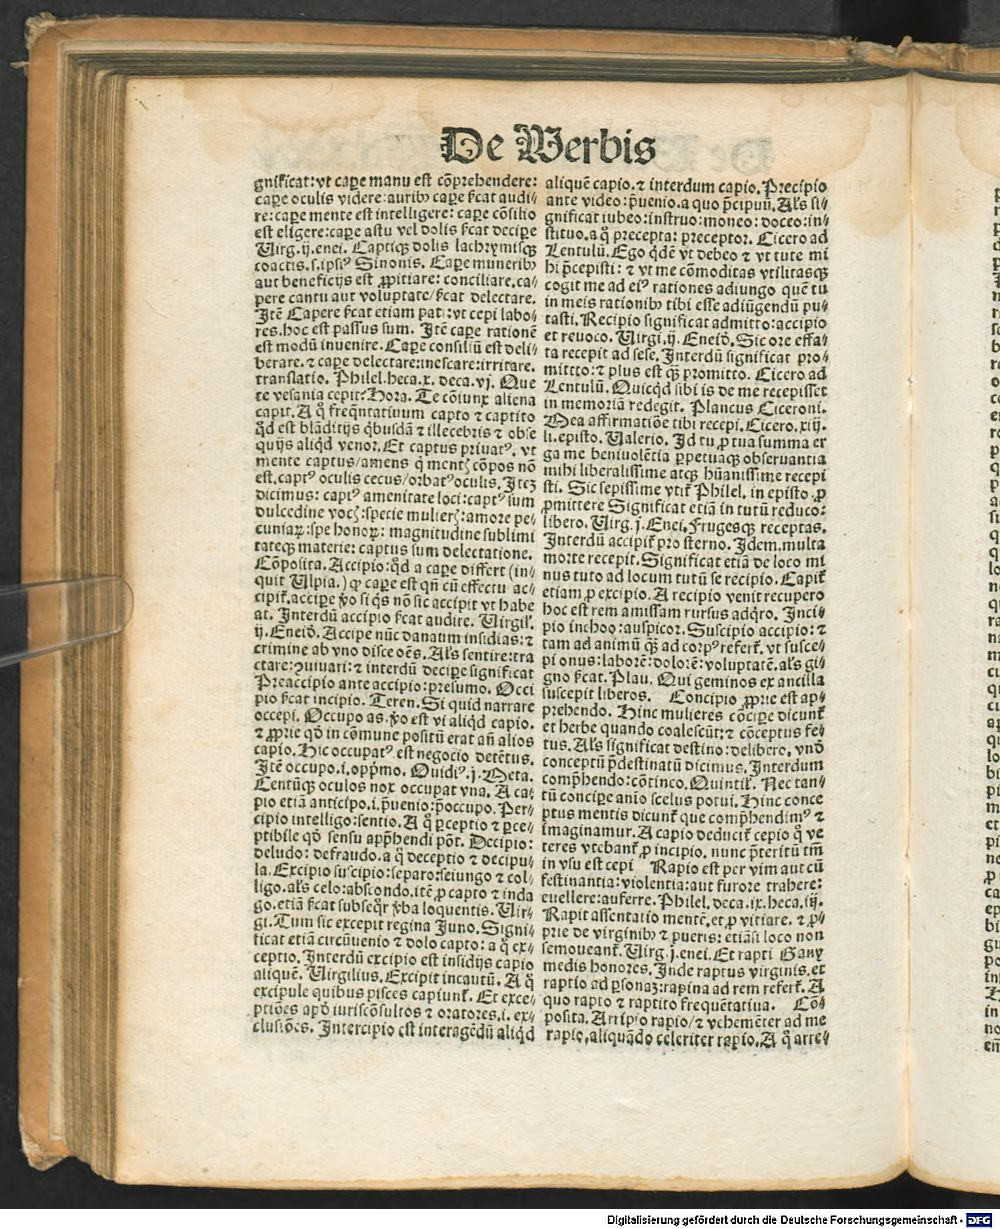 De Verbis
gnificat: vt cape manu est cõprehendere:
cape oculis videre: auribꝰ cape ſcat audi⸗
re: cape mente est intelligere: cape cõsilio
est eligere: cape astu vel dolis ſcat decipe
Virg. ij. enei. Captiqꝫ dolis lachrymisqꝫ
coactis. s. ipsiꝰ Sinonis. Cape muneribꝰ
aut beneficijs est ꝓpitiare: conciliare. ca⸗
pere cantu aut voluptate/ ſcat delectare.
Itẽ Capere ſcat etiam pati: vt cepi labo⸗
res. hoc est passus sum. Itẽ cape rationẽ
est modũ inuenire. Cape consiliũ est deli⸗
berare. ⁊ cape delectare: inescare: irritare.
translatio. Philel. heca. x. deca. vj. Que
te vesania cepit: Hora. Te cõiunx aliena
capit. A q̃ freq̃ntatiuum capto ⁊ captito
q̃d est blãditijs q̃busdã ⁊ illecebris ⁊ obse
quijs aliqd venor. Et captus priuatꝰ. vt
mente captus/ amens q̃ mentꝭ cõpos nõ
est. captꝰ oculis cecus/ orbatꝰ oculis. Itez
dicimus: captꝰ amenitate loci: captꝰ sum
dulcedine vocꝭ: specie mulierꝭ: amore pe⸗
cuniaꝝ: spe honoꝝ: magnitudine sublimi
tateqꝫ materie: captus sum delectatione.
Cõposita. Accipio: q̃d a cape differt (in⸗
quit Vlpia.) ꝙ cape est qñ cũ effectu ac⸗
cipit̃. accipe ṽo si q̃s nõ sic accipit vt habe
at. Interdũ accipio ſcat audire. Virgil̃.
ij. Eneid̃. Accipe nũc danaum insidias: ⁊
crimine ab vno disce oẽs. Al̃s sentire: tra
ctare: ꝯuiuari: ⁊ interdũ decipe significat
Preaccipio ante accipio: presumo. Occi
pio ſcat incipio. Teren. Si quid narrare
occepi. Occupo as. ṽo est vi aliqd capio.
⁊ ꝓprie qd̃ in cõmune positũ erat añ alios
capio. Hic occupatꝰ est negocio detẽtus.
Itẽ occupo. i. opp̃mo. Ouidiꝰ. j. Meta.
Centũqꝫ oculos nox occupat vna. A ca⸗
pio etiã anticipo. i. p̃uenio: p̃occupo. Per⸗
cipio intelligo: sentio. A q̃ ꝑceptio ⁊ ꝑce⸗
ptibile qd̃ sensu app̃hendi põt. Decipio:
deludo: defraudo. a q̃ deceptio ⁊ decipu⸗
la. Excipio suscipio: separo: seiungo ⁊ col⸗
ligo. al̃s celo: abscondo. itẽ ꝓ capto ⁊ inda
go. etiã ſcat subseq̃r ṽba loquentis. Vir⸗
gi. Tum sic excepit regina Juno. Signi⸗
ficat etiã circũuenio ⁊ dolo capto: a q̃ ex⸗
ceptio. Interdũ excipio est insidijs capio
aliquẽ. Virgilius. Excipit incautũ. A q̃
excipule quibus pisces capiunt̃. Et exce⸗
ptiões apd̃ iuriscõsultos ⁊ oratores. i. ex⸗
clusiões. Intercipio est interagẽdũ aliqd
aliquẽ capio. ⁊ interdum capio. Precipio
ante video: p̃uenio. a quo p̃cipuũ. Al̃s si⸗
gnificat iubeo: instruo: moneo: doceo: in⸗
stituo. a q̃ precepta: preceptor. Cicero ad
Lentulũ. Ego qd̃ẽ vt debeo ⁊ vt tute mi
hi p̃cepisti: ⁊ vt me cõmoditas vtilitasqꝫ
cogit me ad eiꝰ rationes adiungo quẽ tu
in meis rationibꝰ tibi esse adiũgendũ pu⸗
tasti. Recipio significat admitto: accipio
et reuoco. Virgi. ij. Eneid̃. Sic ore effa⸗
ta recepit ad sese. Interdũ significat pro⸗
mitto: ⁊ plus est qꝫ promitto. Cicero ad
Lentulũ. Quicqd sibi is de me recepisset
in memoriã redegit. Plancus Ciceroni.
Mea affirmatiõe tibi recepi. Cicero. xiij.
li. episto. Valerio. Id tu ꝓ tua summa er
ga me beniuolẽtia ꝑpetuaqꝫ obseruantia
mihi liberalissime atqꝫ hũanissime recepi
sti. Sic sepissime vtit̃ Philel. in episto. ꝓ
ꝓmittere Significat etiã in tutũ reduco:
libero. Virg. j. Enei. Frugesqꝫ receptas.
Interdũ accipit̃ pro sterno. Idem. multa
morte recepit. Significat etiã de loco mi
nus tuto ad locum tutũ se recipio. Capit̃
etiam ꝓ excipio. A recipio venit recupero
hoc est rem amissam rursus adqro. Inci⸗
pio inchoo: auspicor. Suscipio accipio: ⁊
tam ad animũ qꝫ ad corpꝰ refert̃. vt susce⸗
pi onus: laborẽ: dolorẽ: voluptatẽ. al̃s gi⸗
gno ſcat. Plau. Qui geminos ex ancilla
suscepit liberos. Concipio ꝓprie est ap⸗
prehendo. Hinc mulieres cõcipe dicunt̃
et herbe quando coalescũt: ⁊ cõceptus fe⸗
tus. Al̃s significat destino: delibero. vnd̃
conceptũ p̃destinatũ dicimus. Interdum
comp̃hendo: cõtinco. Quintil̃. Nec tan⸗
tũ concipe anio scelus potui. Hinc conce
ptus mentis dicunt̃ que comp̃hendimꝰ ⁊
imaginamur. A capio deducit̃ cepio q̃ ve
teres vtebant̃ ꝓ incipio. nunc p̃teritũ tm̃
in vsu est cepi Rapio est per vim aut cũ
festinantia: violentia: aut furore trahere:
euellere: auferre. Philel. deca. ix. heca. iij.
Rapit assentatio mentẽ. et ꝓ vitiare. ⁊ ꝓ⸗
prie de virginibꝰ ⁊ pueris: etiãsi loco non
semoueant̃. Virg. j. enei. Et rapti Gany
medis honores. Inde raptus virginis. et
raptio ad ꝑsonaz: rapina ad rem refert̃. A
quo rapto ⁊ raptito frequẽtatiua. Cõ⸗
posita. Arripio rapio/ ⁊ vehemẽter ad me
rapio. aliquãdo celeriter rapio. A q̃ arre⸗
Digitalisierung gefördert durch die Deutsche Forschungsgemeinschaft - DFG